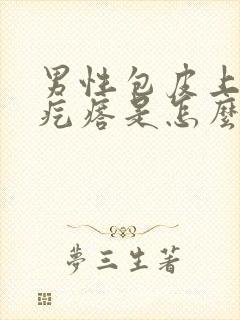 男性包皮上
疙瘩是怎麼
夢三生著